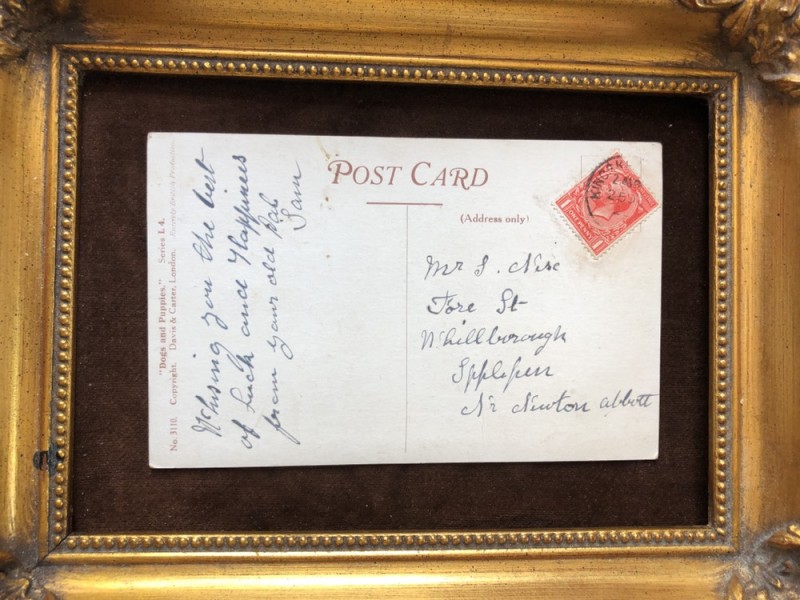 POST CARD
(Address only)
Whising you the best
of luck and Happiness
from your old Pal
Sam
Mr S.
Fore St
Whillborough
Ipplepen
Nr Newton Abbott
"Dogs and Puppies." Series L 4.
No. 3110. Copyright. Davis & Carter, London.
1 ONE PENNY 1